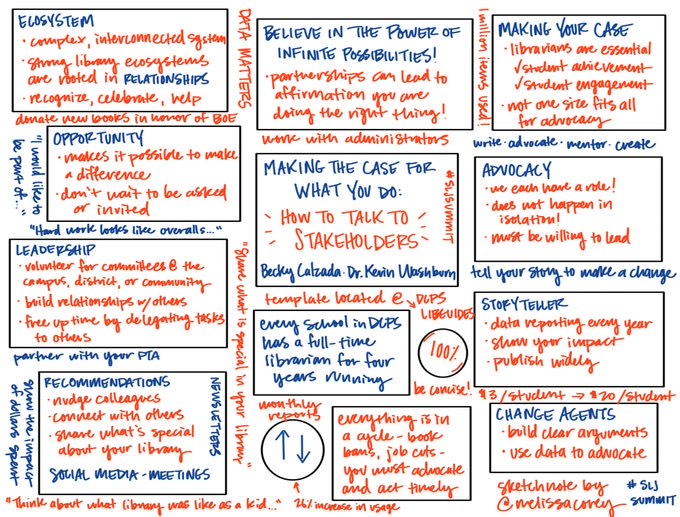 ECOSYSTEM
· complex, interconnected system
· strong library ecosystems
are rooted in RELATIONSHIPS
· recognize, celebrate, help
donate new books in honor of BOE
OPPORTUNITY
· makes it possible to make
a difference
· don't wait to be asked
or invited
"I would like to
be part of..."
"Hard work looks like overalls..."
LEADERSHIP
· volunteer for committees @ the
campus, district, or community
· build relationships w/others
· free up time by delegating tasks
to others
partner with your PTA
RECOMMENDATIONS
· nudge colleagues
· connect with others
· share what's special
about your library
SOCIAL MEDIA - MEETINGS
show the impact
of dollars spent
NEWSLETTERS
"Think about what library was like as a kid..."
DATA MATTERS
BELIEVE IN THE POWER OF
INFINITE POSSIBILITIES!
· partnerships can lead to
affirmation you are
doing the right thing!
work with administrators
MAKING THE CASE FOR
WHAT YOU DO:
HOW TO TALK TO
STAKEHOLDERS
Becky Calzada · Dr. Kevin Washburn
#SLJSUMMIT
"Share what is special in your library"
template located @ → DCPS
LIBGUIDES
every school in DCPS
has a full-time
librarian for four
years running
100%
be concise!
monthly
reports
↑↓
26% increase in usage
everything is in
a cycle - book
bans, job cuts -
you must advocate
and act timely
1 million items used!
MAKING YOUR CASE
· librarians are essential
✓student achievement
✓student engagement
· not one size fits all
for advocacy
write · advocate · mentor · create
ADVOCACY
· we each have a role!
· does not happen in
isolation!
· must be willing to lead
tell your story to make a change
STORYTELLER
· data reporting every year
· show your impact
· publish widely
$3/student → $20/student
CHANGE AGENTS
· build clear arguments
· use data to advocate
sketchnote by
@melissacorey
# SLJ
SUMMIT